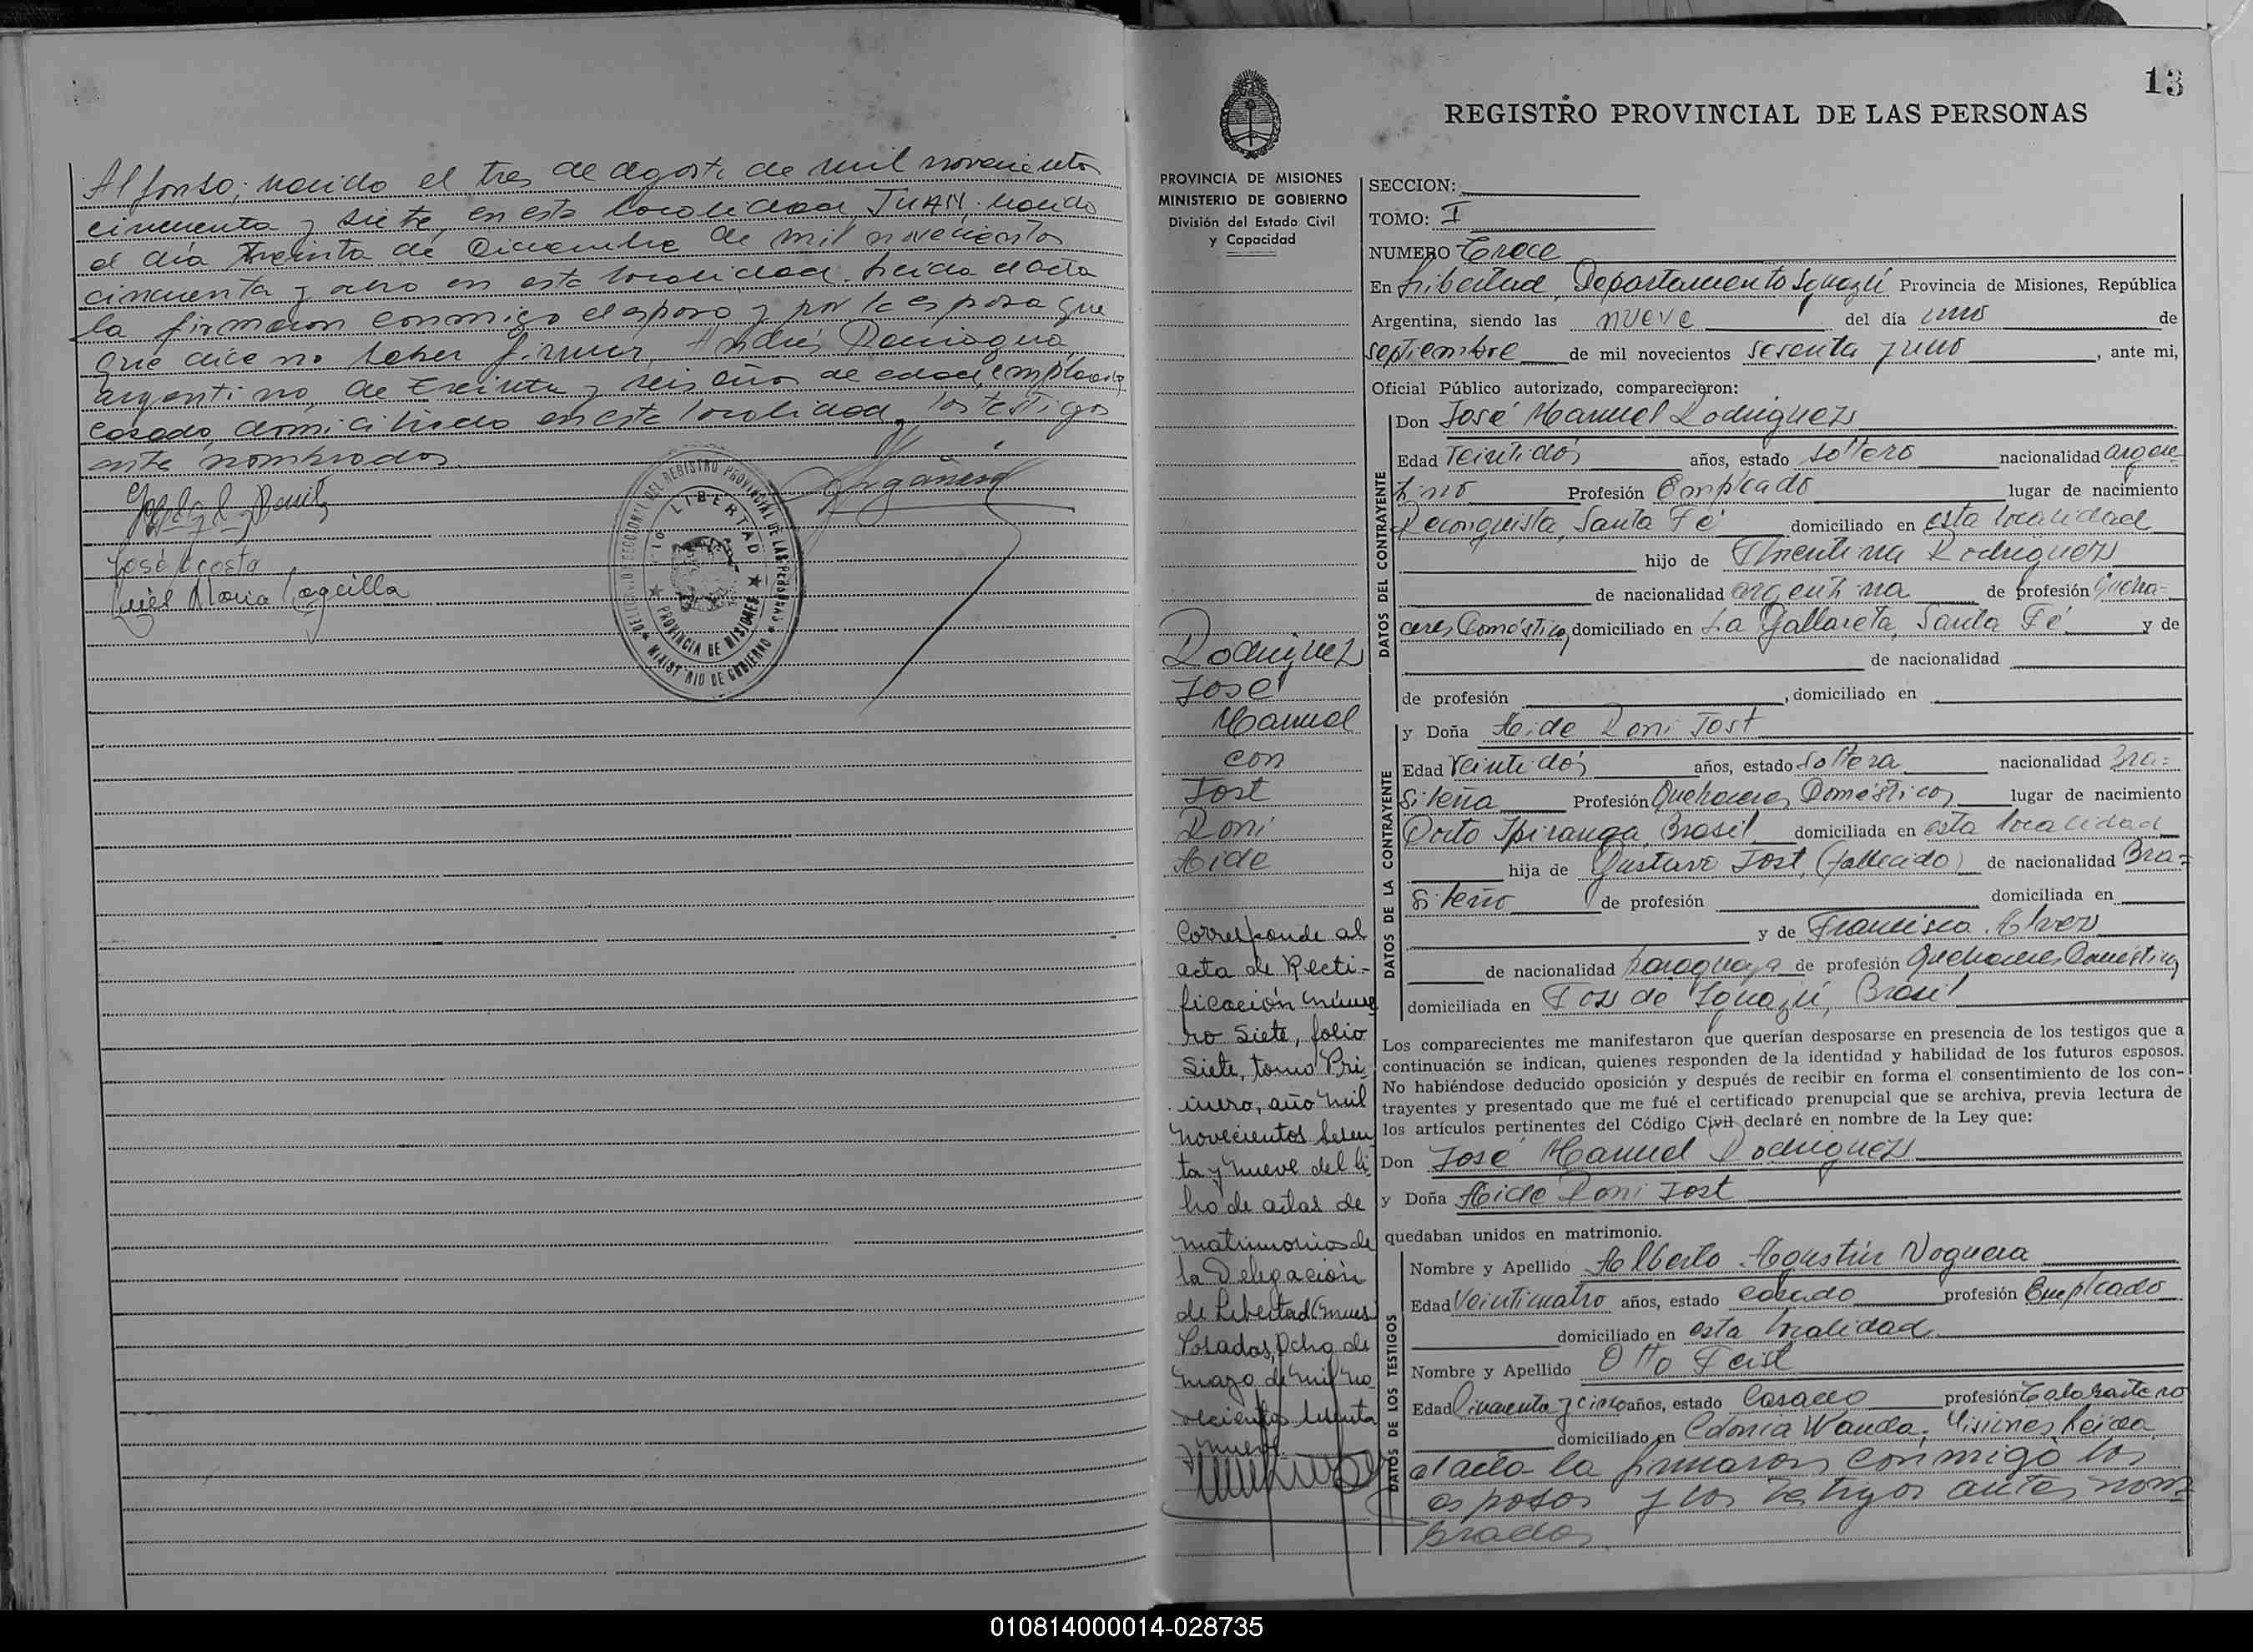 Alfonso, nacido el tres de agosto de mil novecientos
cincuenta y siete, en esta localidad, JUAN, nacido
el día treinta de Diciembre de mil novecientos
cincuenta y ocho en esta localidad. Leida el acta
la firmaron conmigo el esposo y por la esposa que
que dice no saber firmar, Andrés
argentino, de treinta y seis años de edad, empleado
casado, domiciliado en esta localidad, los testigos
ante nombrados.
José Acosta
Inés Maria
DELEGACION SECCIONAL DEL REGISTRO PROVINCIAL DE LAS PERSONAS
LIBERTAD
PROVINCIA DE MISIONES
MINISTERIO DE GOBIERNO
13
REGISTRO PROVINCIAL DE LAS PERSONAS
PROVINCIA DE MISIONES
MINISTERIO DE GOBIERNO
División del Estado Civil
y Capacidad
Rodriguez
José
Manuel
con
Jost
Roni
Aide
Corresponde al
acta de Recti-
ficación núme
ro Siete, folio
Siete, tomo Pri-
mero, año mil
novecientos seten
ta y nueve del li
bro de actas de
matrimonios de
la Delegación
de Libertad (Mnes)
Posadas, Ocho de
mayo de mil no
vecientos setenta
y nueve.
SECCION:
TOMO: I
NUMERO Trece
En Libertad, Departamento Iguazú Provincia de Misiones, República
Argentina, siendo las nueve del día uno de
septiembre de mil novecientos sesenta y uno, ante mi,
Oficial Público autorizado, comparecieron:
DATOS DEL CONTRAYENTE
Don José Manuel Rodriguez
Edad Veintidós años, estado soltero nacionalidad argen
tino Profesión Empleado lugar de nacimiento
Reconquista, Santa Fé domiciliado en esta localidad
hijo de Florentina Rodriguez
de nacionalidad argentina de profesión Queha=
ceres Domésticos domiciliado en La Gallareta, Santa Fé y de
de nacionalidad
de profesión , domiciliado en
DATOS DE LA CONTRAYENTE
y Doña Aide Roni Jost
Edad Veintidós años, estado soltera nacionalidad Bra=
sileña Profesión Quehaceres Domésticos lugar de nacimiento
Porto Ipiranga, Brasil domiciliada en esta localidad
hija de Gustavo Jost, (fallecido) de nacionalidad Bra=
sileño de profesión domiciliada en
y de Francisca Alvez
de nacionalidad paraguaya de profesión Quehaceres Domésticos
domiciliada en Foz de Iguazú, Brasil
Los comparecientes me manifestaron que querían desposarse en presencia de los testigos que a
continuación se indican, quienes responden de la identidad y habilidad de los futuros esposos.
No habiéndose deducido oposición y después de recibir en forma el consentimiento de los con-
trayentes y presentado que me fué el certificado prenupcial que se archiva, previa lectura de
los artículos pertinentes del Código Civil declaré en nombre de la Ley que:
Don José Manuel Rodriguez
y Doña Aide Roni Jost
quedaban unidos en matrimonio.
DATOS DE LOS TESTIGOS
Nombre y Apellido Alberto Agustin Noguera
Edad Veinticuatro años, estado casado profesión Empleado
domiciliado en esta localidad
Nombre y Apellido Otto Feist
Edad Cincuenta y cinco años, estado Casado profesión Talabartero
domiciliado en Colonia Wanda, Misiones, Leida
el acta la firmaron conmigo los
esposos y los testigos antes nom=
brados
010814000014-028735